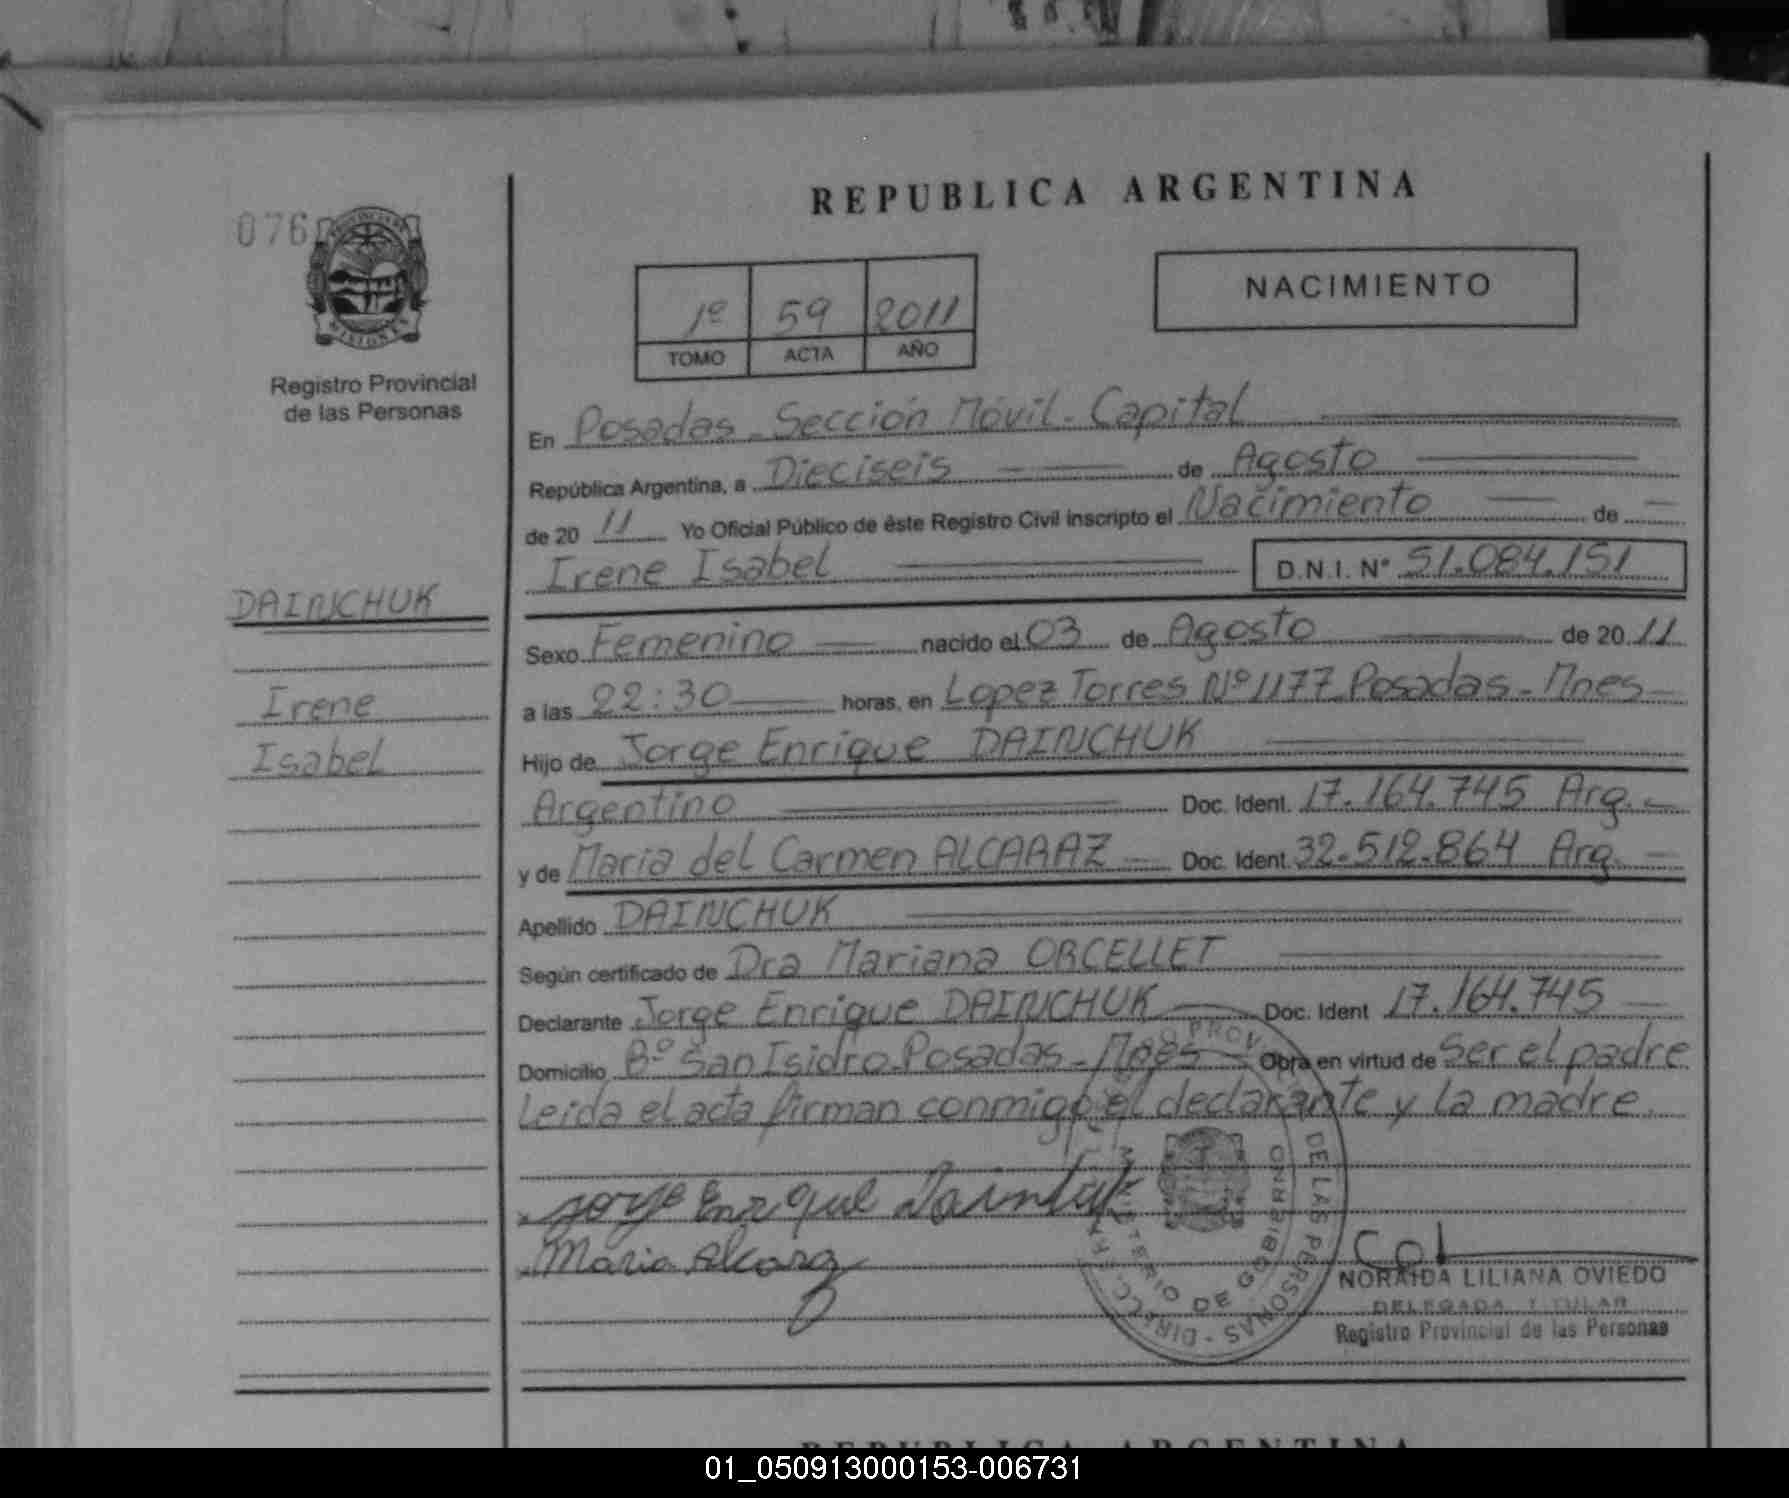 REPUBLICA ARGENTINA
076
PROVINCIA DE MISIONES
Registro Provincial
de las Personas
1º 59 2011
TOMO ACTA AÑO
NACIMIENTO
En Posadas - Sección Móvil - Capital
República Argentina, a Dieciseis de Agosto
de 20 11 Yo Oficial Público de éste Registro Civil inscripto el Nacimiento de
Irene Isabel D.N.I. Nº 51.084.151
DAINCHUK
Irene
Isabel
Sexo Femenino nacido el 03 de Agosto de 20 11
a las 22:30 horas, en Lopez Torres Nº 1177 Posadas - Mnes
Hijo de Jorge Enrique DAINCHUK
Argentino Doc. Ident. 17.164.745 Arg.
y de Maria del Carmen ALCARAZ Doc. Ident. 32.512.864 Arg.
Apellido DAINCHUK
Según certificado de Dra Mariana ORCELLET
Declarante Jorge Enrique DAINCHUK Doc. Ident 17.164.745
Domicilio Bº San Isidro - Posadas - Mnes Obra en virtud de Ser el padre
Leida el acta firman conmigo el declarante y la madre
Jorge Enrique Dainchuk
Maria Alcaraz
MINISTERIO DE GOBIERNO
DE LAS PERSONAS - DIRECC.
NORAIDA LILIANA OVIEDO
DELEGADA TITULAR
Registro Provincial de las Personas
REPUBLICA ARGENTINA
01_050913000153-006731